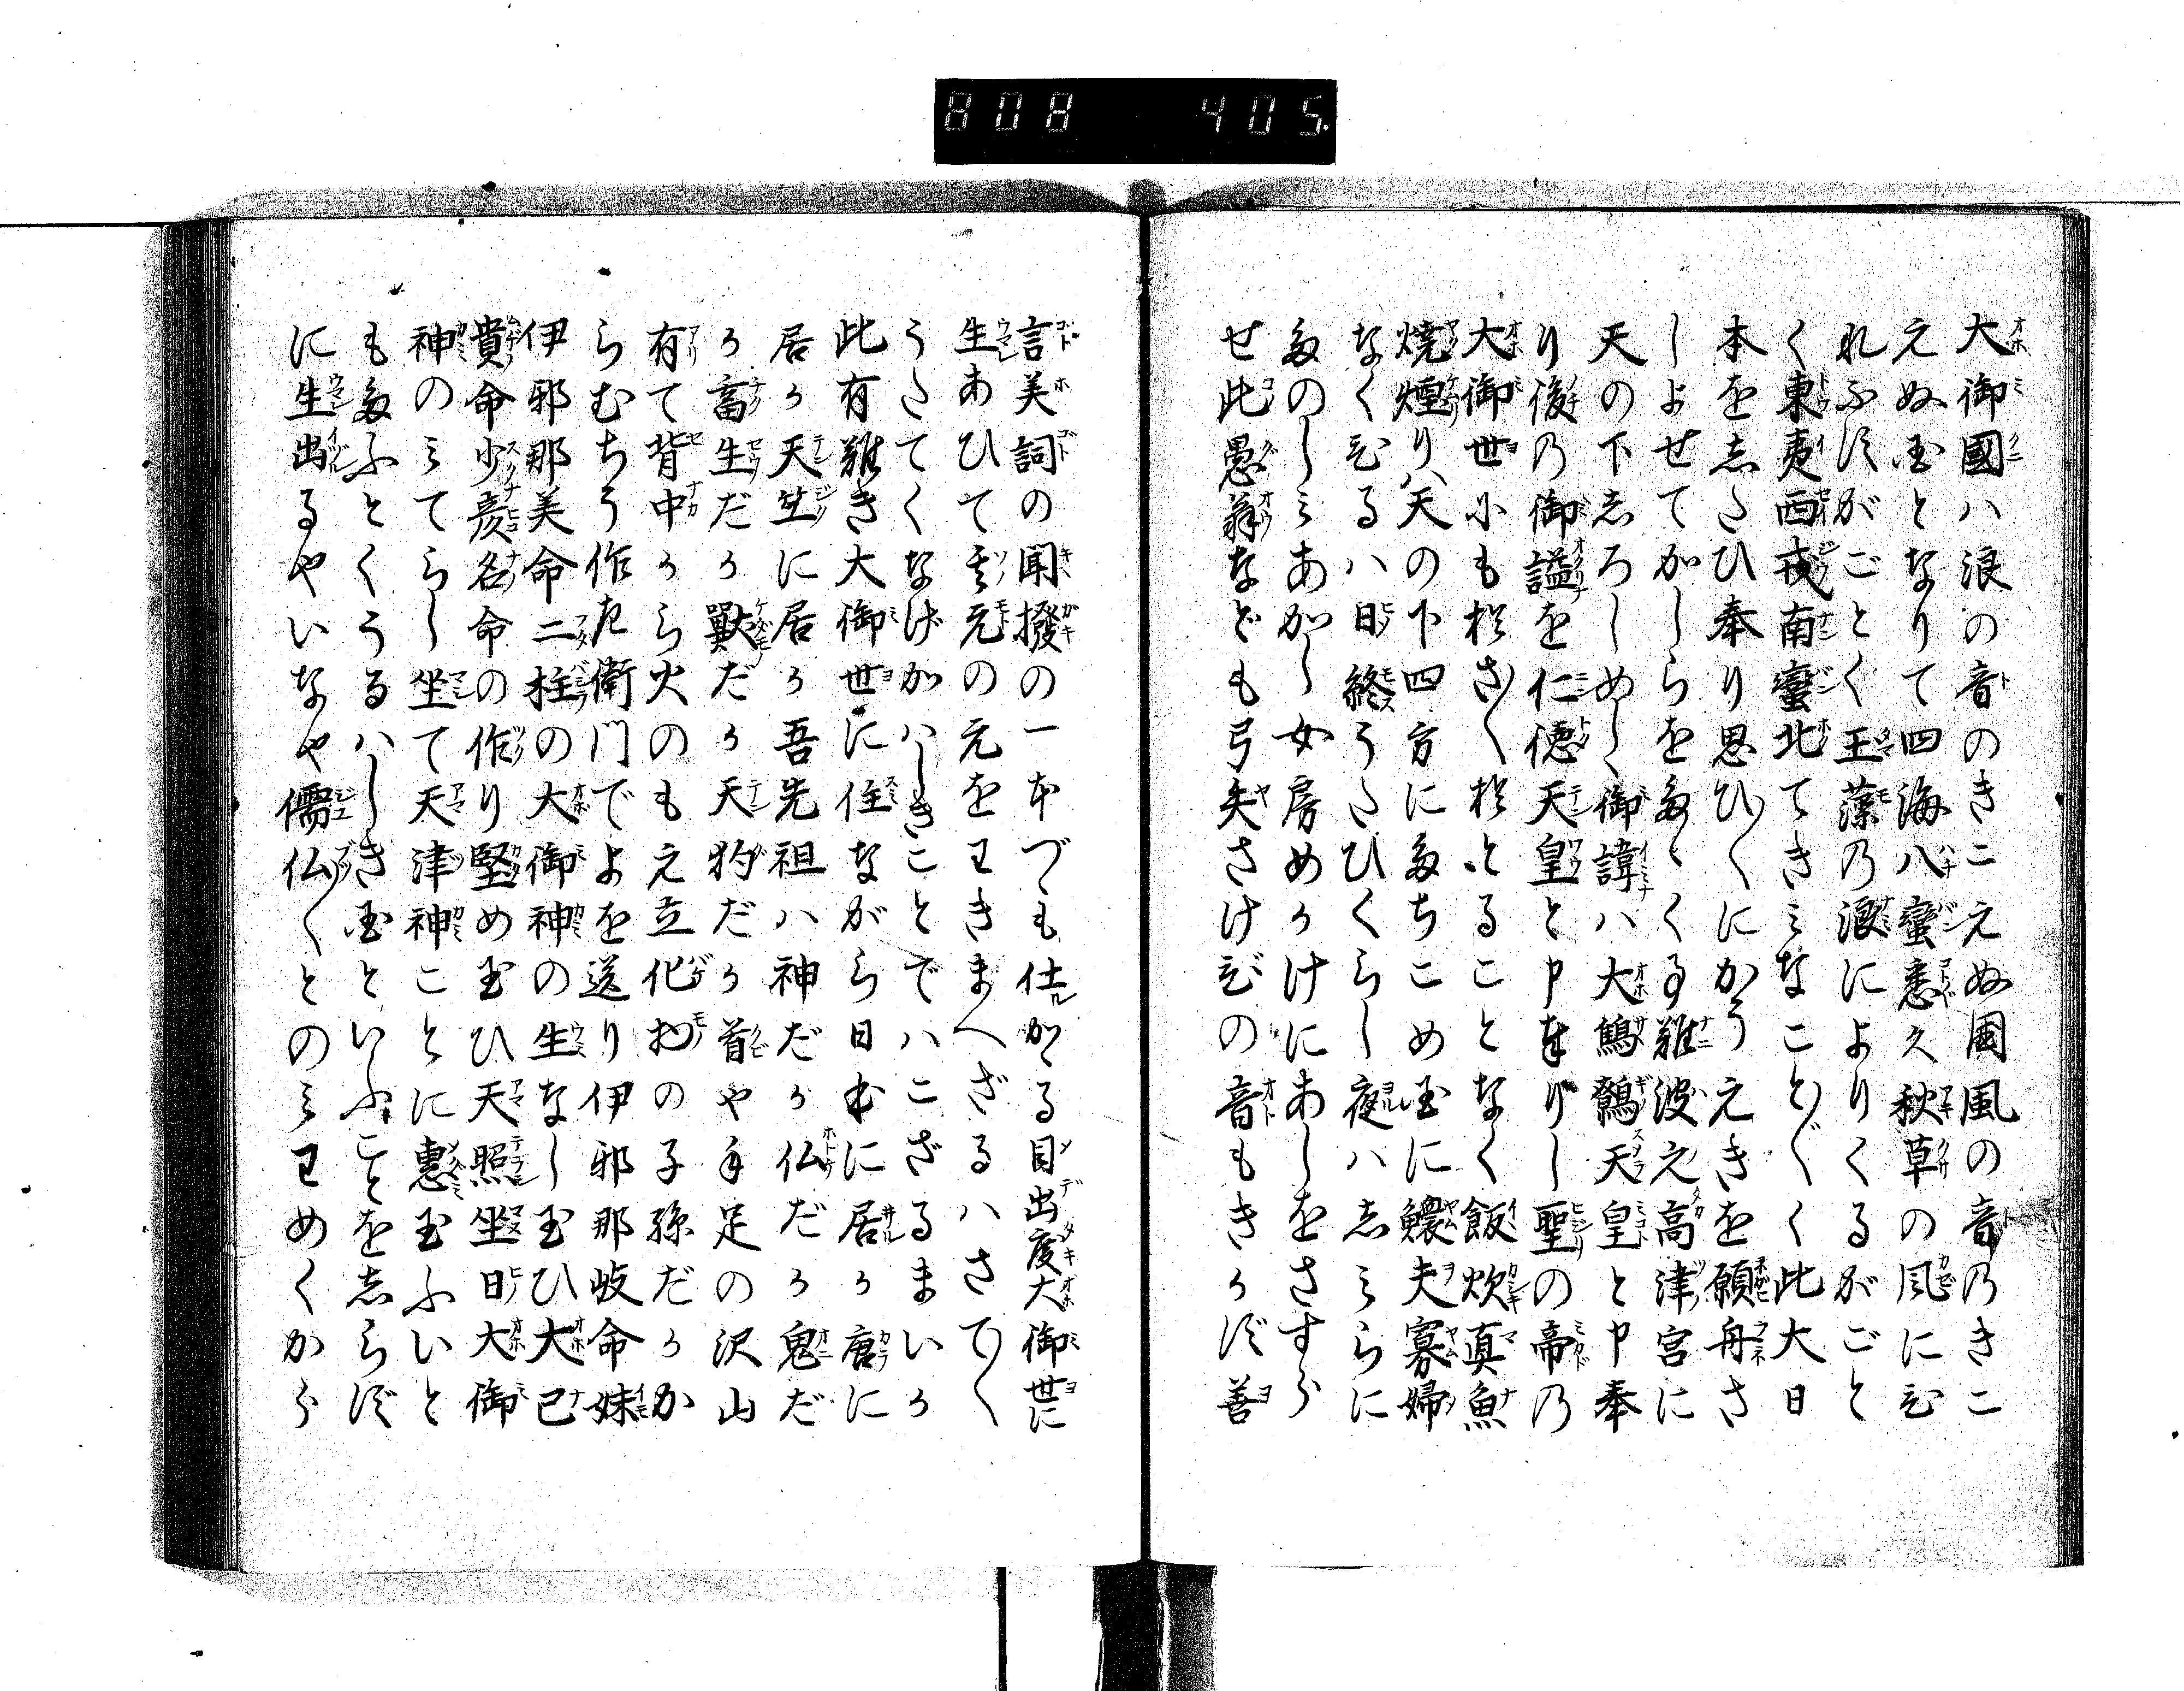 808 405.
大御國ハ浪の音のきこえぬ国風の音乃きこ
えぬ玉となりて四海八蛮悉久秋草の風にむ
れふすがごとく玉藻乃浪によりくるがごと
く東夷西戎南蛮北てきミなこと〴〵く此大日
本をしたひ奉り思ひ〳〵にかうえきを願舟さ
しよせてかしらをたゝくる難波之高津宮に
天の下志ろしめし御諱ハ大鷦鷯天皇と申奉
り後乃御謚を仁徳天皇と申奉りし聖の帝乃
大御世にも増さく増とることなく飯炊真魚
焼煙りハ天の下四方にたちこめ玉に鰥夫寡婦
なくむるハ日終うたひくらし夜ハ志ミらに
たのしミあかし女房めうけにあしをさすら
せ此愚翁なども弓矢さけびの音もきかず善
言美詞の聞撥の一本づも仕かゝる目出度大御世に
生あひて其元の元をわきまへざるハさて〳〵
うたてくなげかハしきことでハこざるまいか
此有難き大御世に住ながら日本に居か唐に
居か天竺に居か吾先祖ハ神だか仏だか鬼だ
か畜生だか獣だか天狗だか首や手足の沢山
有て背中から火のもえ立化物の子孫だかか
らむちう作左衛門でよを送り伊邪那岐命妹
伊邪那美命二柱の大御神の生なし玉ひ大己
貴命少彦名命の作り堅め玉ひ天照坐日大御
神のミてらし坐て天津神ことに恵玉ふいと
もたふとくうるハしき玉といふことを志らず
に生出るやいなや儒仏〳〵とのミわめくから